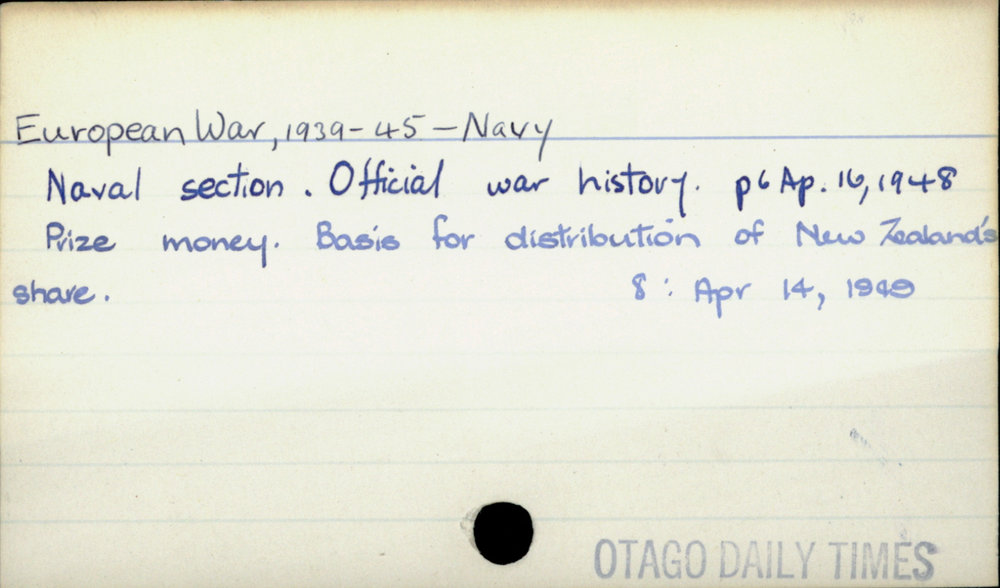 European War, 1939-45 - Navy
Naval section. Official war history. p6 Ap. 16, 1948
Prize money. Basis for distribution of New Zealand's
share. 8: Apr 14, 1949
OTAGO DAILY TIMES